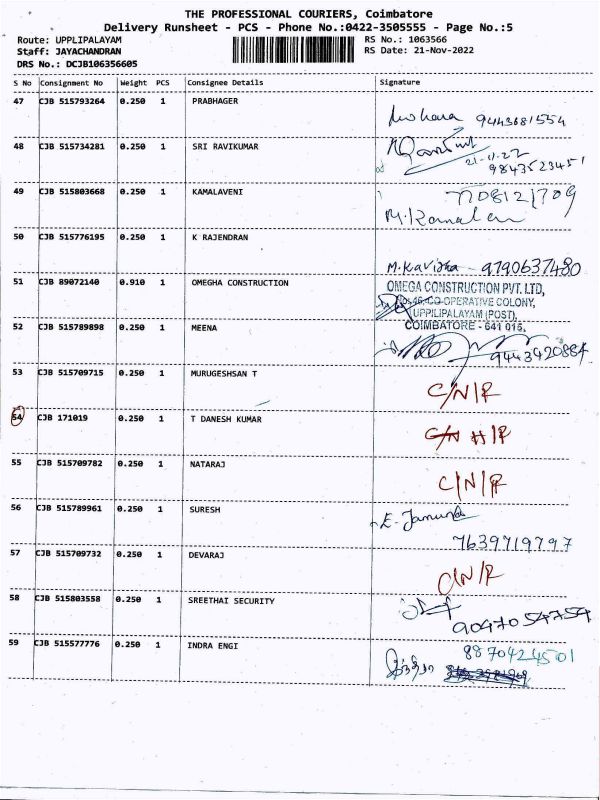 THE PROFESSIONAL COURIERS, Coimbatore
Delivery Runsheet - PCS - Phone No.:0422-3505555 - Page No.:5
Route: UPPLIPALAYAM RS No.: 1063566
Staff: JAYACHANDRAN RS Date: 21-Nov-2022
DRS No.: DCJB106356605
S No Consignment No Weight PCS Consignee Details Signature
47 CJB 515793264 0.250 1 PRABHAGER
9443681554
48 CJB 515734281 0.250 1 SRI RAVIKUMAR
21-11-22
9843523451
49 CJB 515803668 0.250 1 KAMALAVENI
7708121709
M.Kamalav
50 CJB 515776195 0.250 1 K RAJENDRAN
M.Kavitha - 9790637480
51 CJB 89072140 0.910 1 OMEGHA CONSTRUCTION
OMEGA CONSTRUCTION PVT. LTD,
No.46, CO-OPERATIVE COLONY,
UPPILIPALAYAM (POST),
COIMBATORE - 641 015.
52 CJB 515789898 0.250 1 MEENA
9443420884
53 CJB 515709715 0.250 1 MURUGESHSAN T
C/N/R
54 CJB 171019 0.250 1 T DANESH KUMAR
H/R
55 CJB 515709782 0.250 1 NATARAJ
C/N/R
56 CJB 515789961 0.250 1 SURESH
E. Jamuna
7639719797
57 CJB 515709732 0.250 1 DEVARAJ
C/N/R
58 CJB 515803558 0.250 1 SREETHAI SECURITY
9047054754
59 CJB 515577776 0.250 1 INDRA ENGI
8870424501
இந்திரா